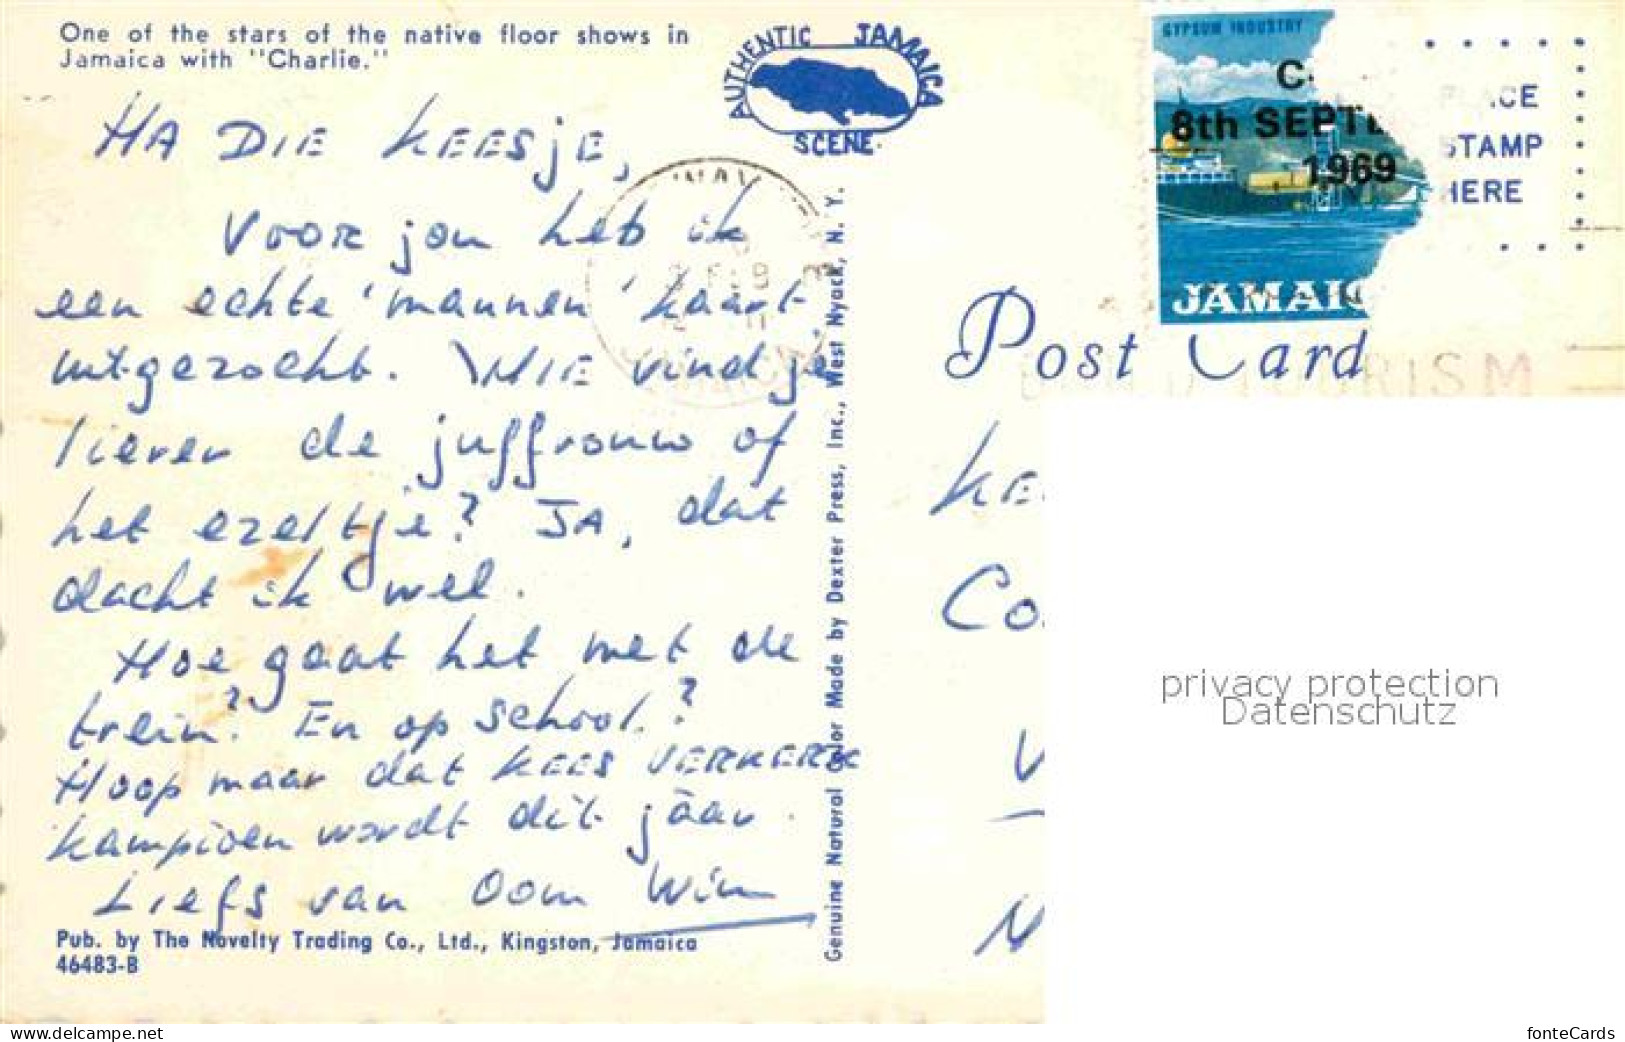 One of the stars of the native floor shows in
Jamaica with "Charlie."
AUTHENTIC JAMAICA
SCENE
HA DIE KEESJE,
Voor jou heb ik
een echte 'mannen' kaart
uitgezocht. WIE vind je
liever de juffrouw of
het ezeltje? JA, dat
dacht ik wel.
Hoe gaat het met de
trein? En op school?
Hoop maar dat KEES VERKERK
kampioen wordt dit jaar.
Liefs van Oom Wim
Pub. by The Novelty Trading Co., Ltd., Kingston, Jamaica
46483-B
Genuine Natural Color Made by Dexter Press, Inc., West Nyack, N. Y.
GYPSUM INDUSTRY
C-
8th SEPTE
1969
JAMAIC
PLACE
STAMP
HERE
Post Card
TOURISM
KE
Co
V
N
privacy protection
Datenschutz
www.delcampe.net
fonteCards